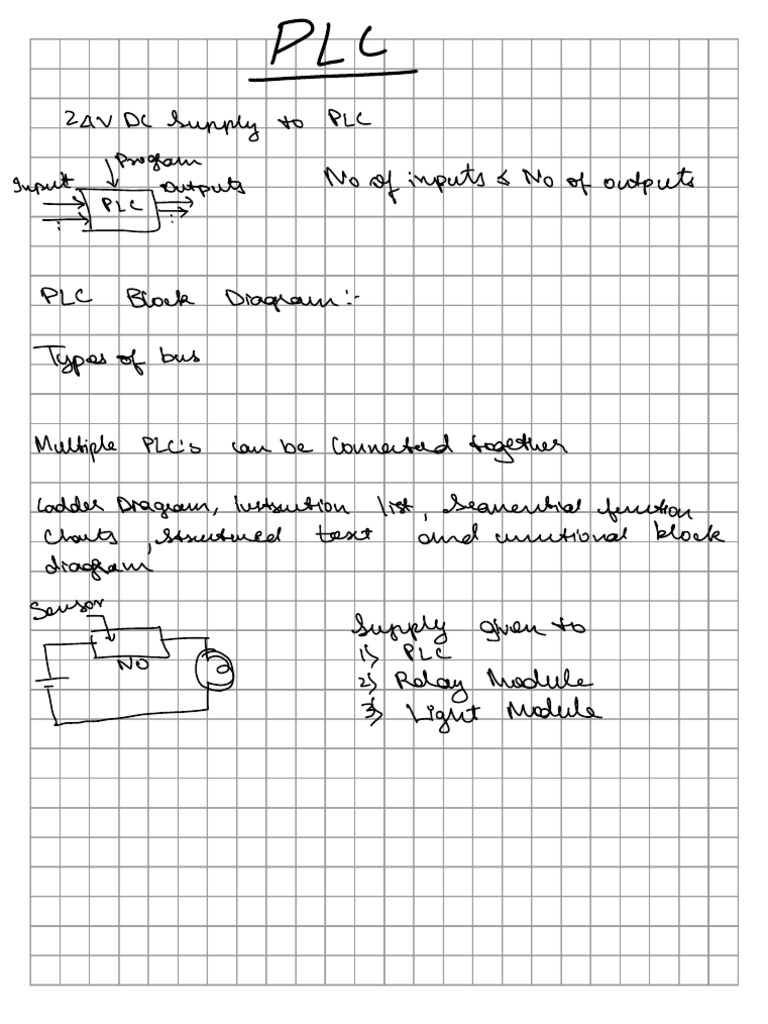 PLC
24V DC Supply to PLC
Program
Input
Outputs
PLC
No of inputs & No of outputs
PLC Block Diagram:-
Types of bus
Multiple PLC's can be Connected together
Ladder Diagram, instruction list, Sequential function
Charts, structured text and unutional block
diagram
Sensor
NO
Supply given to
1) PLC
2) Relay Module
3) Light Module